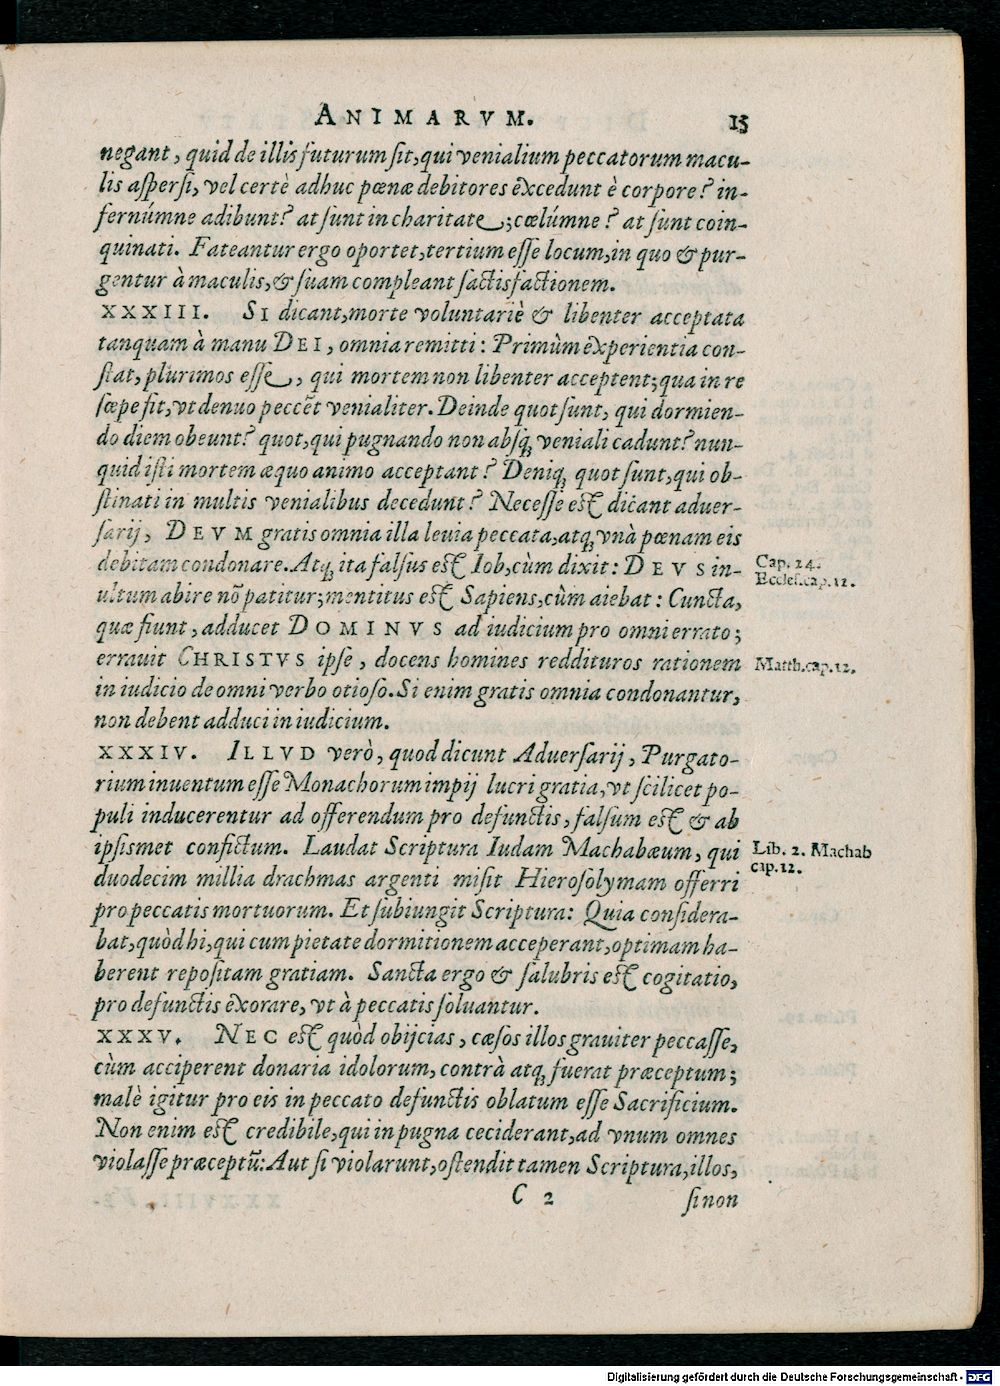 ANIMARVM. 15
negant, quid de illis futurum sit, qui venialium peccatorum macu-
lis aspersi, vel certè adhuc pœnæ debitores excedunt è corpore? in-
fernúmne adibunt? at sunt in charitate; cœlúmne? at sunt coin-
quinati. Fateantur ergo oportet, tertium esse locum, in quo & pur-
gentur à maculis, & suam compleant sactisfactionem.
XXXIII. SI dicant, morte voluntariè & libenter acceptata
tanquam à manu DEI, omnia remitti: Primùm experientia con-
stat, plurimos esse, qui mortem non libenter acceptent; qua in re
sæpe fit, vt denuo peccẽt venialiter. Deinde quot sunt, qui dormien-
do diem obeunt? quot, qui pugnando non absq; veniali cadunt? nun-
quid isti mortem æquo animo acceptant? Deniq; quot sunt, qui ob-
stinati in multis venialibus decedunt? Necesse est dicant aduer-
sarij, DEVM gratis omnia illa leuia peccata, atq; vnà pœnam eis
debitam condonare. Atq; ita falsus est Iob, cùm dixit: DEVS in-
Cap. 24.
Eccles. cap. 12.
ultum abire nõ patitur; mentitus est Sapiens, cùm aiebat: Cuncta,
quæ fiunt, adducet DOMINVS ad iudicium pro omni errato;
errauit CHRISTVS ipse, docens homines reddituros rationem
Matth. cap. 12.
in iudicio de omni verbo otioso. Si enim gratis omnia condonantur,
non debent adduci in iudicium.
XXXIV. ILLVD verò, quod dicunt Aduersarij, Purgato-
rium inuentum esse Monachorum impij lucri gratia, vt scilicet po-
puli inducerentur ad offerendum pro defunctis, falsum est & ab
ipsismet confictum. Laudat Scriptura Iudam Machabæum, qui
Lib. 2. Machab
cap. 12.
duodecim millia drachmas argenti misit Hierosolymam offerri
pro peccatis mortuorum. Et subiungit Scriptura: Quia considera-
bat, quòd hi, qui cum pietate dormitionem acceperant, optimam ha-
berent repositam gratiam. Sancta ergo & salubris est cogitatio,
pro defunctis exorare, vt à peccatis soluantur.
XXXV. NEC est quòd obijcias, cæsos illos grauiter peccasse,
cùm acciperent donaria idolorum, contrà atq; fuerat præceptum;
malè igitur pro eis in peccato defunctis oblatum esse Sacrificium.
Non enim est credibile, qui in pugna ceciderant, ad vnum omnes
violasse præceptũ: Aut si violarunt, ostendit tamen Scriptura, illos,
C 2 sinon
Digitalisierung gefördert durch die Deutsche Forschungsgemeinschaft - DFG